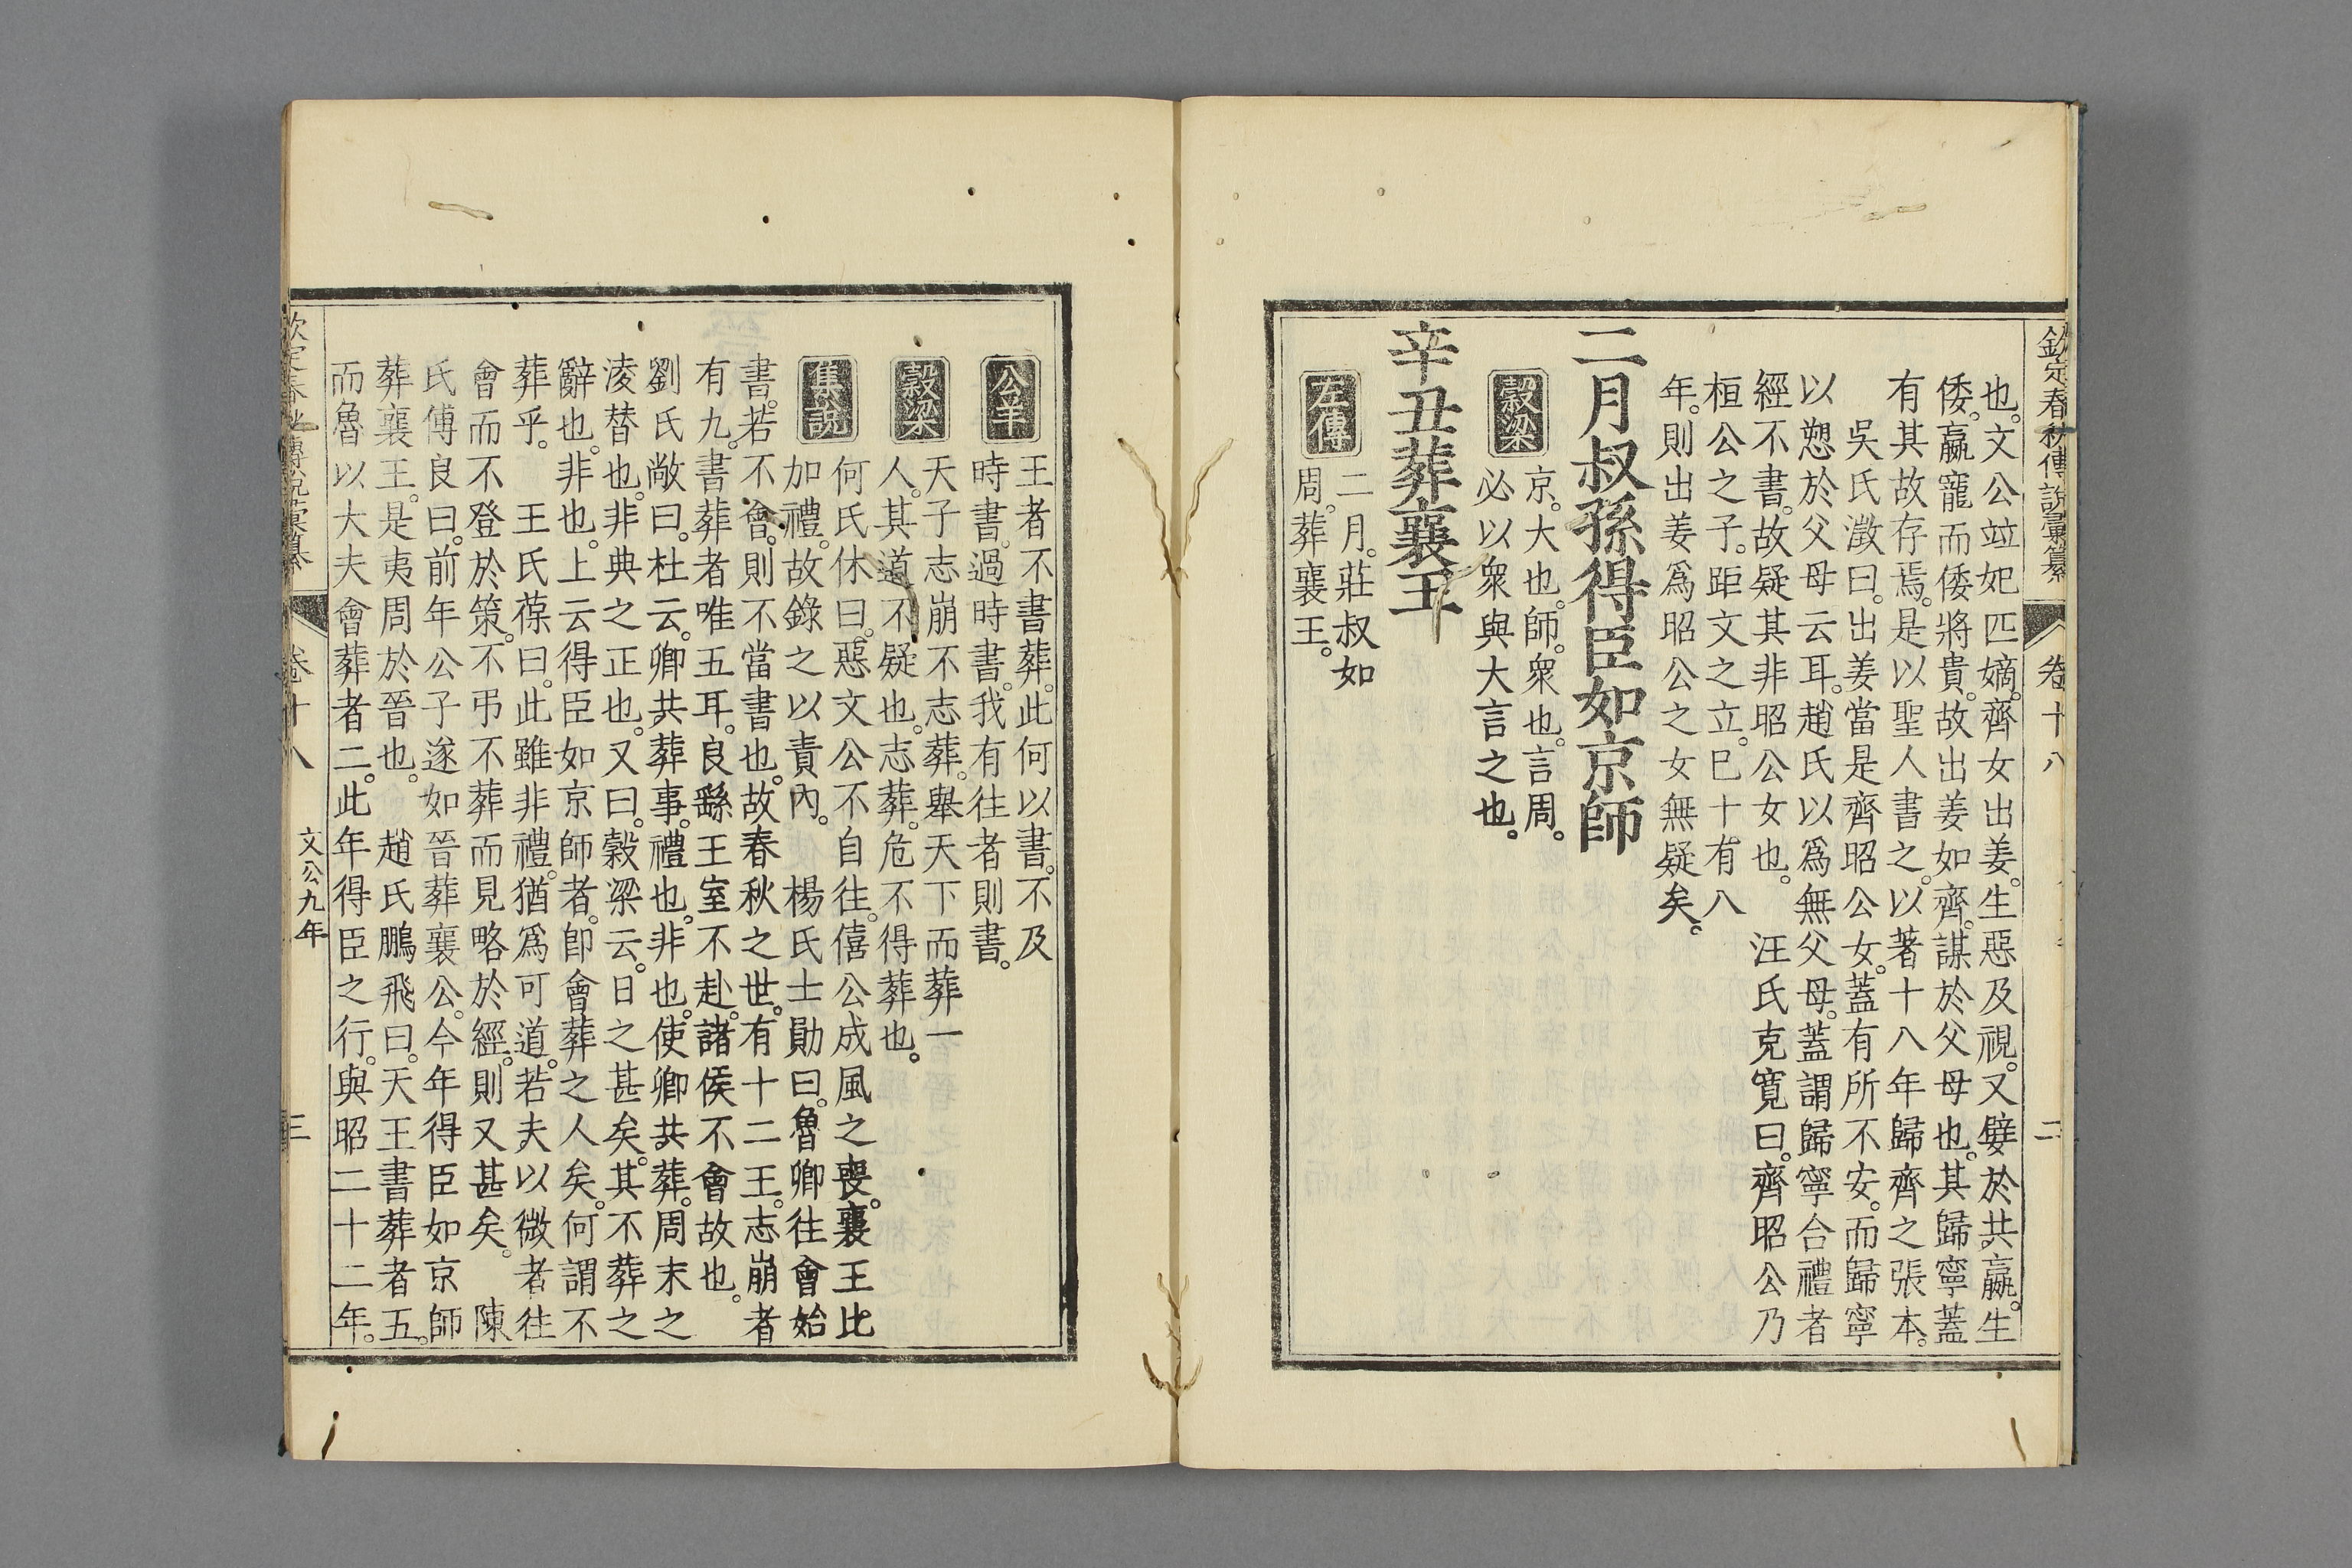 欽定春秋傳說彙纂 卷十八 二
也。文公竝妃匹嫡。齊女出姜。生惡及視。又嬖於共嬴。生
倭。嬴寵而倭將貴。故出姜如齊。謀於父母也。其歸寧蓋
有其故存焉。是以聖人書之。以著十八年歸齊之張本。
吳氏澂曰。出姜當是齊昭公女。蓋有所不安。而歸寧
以愬於父母云耳。趙氏以爲無父母。蓋謂歸寧合禮者
經不書。故疑其非昭公女也。 汪氏克寬曰。齊昭公乃
桓公之子。距文之立。巳十有八
年。則出姜爲昭公之女無疑矣。
二月叔孫得臣如京師
穀梁 京。大也。師。衆也。言周。
必以衆與大言之也。
辛丑葬襄王
左傳 二月。莊叔如
周。葬襄王。
公羊 王者不書葬。此何以書。不及
時書。過時書。我有往者則書。
穀梁 天子志崩不志葬。舉天下而葬一
人。其道不疑也。志葬。危不得葬也。
集說 何氏休曰。惡文公不自往。僖公成風之喪。襄王比
加禮。故錄之以責內。 楊氏士勛曰。魯卿往會始
書。若不會。則不當書也。故春秋之世。有十二王。志崩者
有九。書葬者唯五耳。良繇王室不赴。諸侯不會故也。
劉氏敞曰。杜云。卿共葬事。禮也。非也。使卿共葬。周末之
淩替也。非典之正也。又曰。穀梁云。日之甚矣。其不葬之
辭也。非也。上云得臣如京師者。卽會葬之人矣。何謂不
葬乎。 王氏葆曰。此雖非禮。猶爲可道。若夫以微者往
會而不登於策。不弔不葬而見略於經。則又甚矣。 陳
氏傅良曰。前年公子遂如晉葬襄公。今年得臣如京師
葬襄王。是夷周於晉也。 趙氏鵬飛曰。天王書葬者五。
而魯以大夫會葬者二。此年得臣之行。與昭二十二年。
欽定春秋傳說彙纂 卷十八 文公九年 三